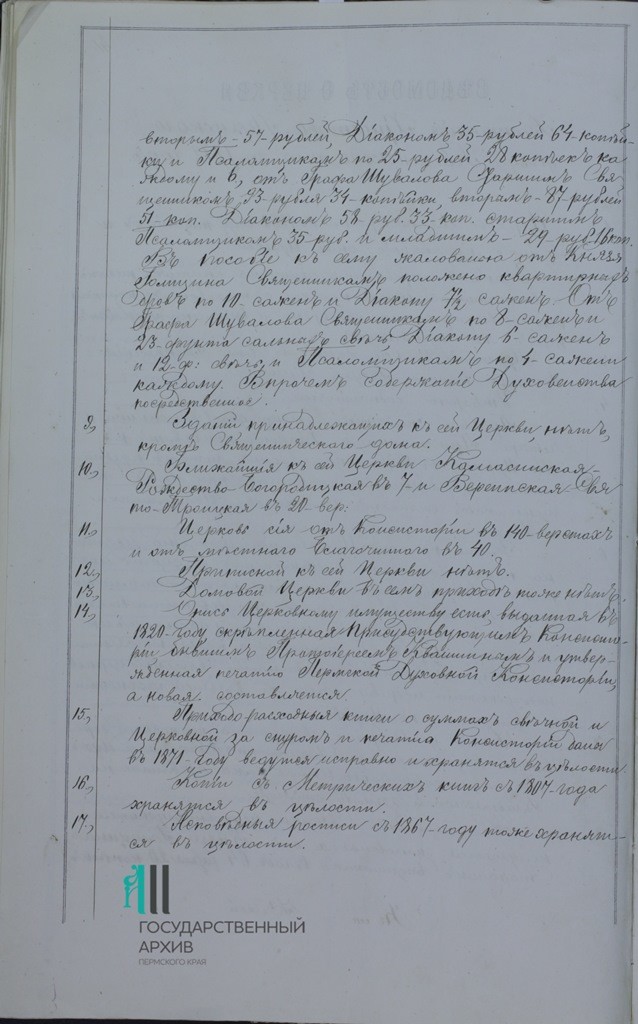 вторымъ - 57 - рублей, Діакономъ 35 - рублей 64 - копѣй-
ки и Псаломщикамъ по 25 - рублей 28 копѣекъ ка
ждому и б, отъ Графа Шувалова Старшимъ Свя-
щенникомъ, 93 - рубля 34 - копѣйки, вторымъ - 87 - рублей
51 - коп. Діакономъ 58 - руб. 33 - коп. старшимъ
Псаломщикомъ 35 - руб. и младшимъ - 29 - руб. 16 коп.
Въ пособіе къ сему жалованью отъ Князя
Голицина Священникамъ положено квартирныхъ
дровъ по 10 - саженъ и Діакону 7½ саженъ - Отъ
Графа Шувалова Священникамъ по 8 - саженъ и
23 - фунта сальныхъ свѣчь, Діакону 6 - саженъ
и 12 - ф: свѣчь, и Псаломщикамъ по 4 - сажени
каждому. Впрочемъ содержаніе Духовенства
посредственное.
9, Зданій принадлежащихъ къ сей Церкви нѣтъ,
кромѣ Священническаго дома.
10, Ближайшія къ сей Церкви Камасинская -
Рождество - Богородицкая въ 7 - и Вереинская - Свя
то - Троицкая въ 20 - вер:
11, Церковь сія отъ Консисторіи въ 140 - верстахъ
и отъ мѣстнаго Благочиннаго въ 40.
12, Приписной къ сей Церкви нѣтъ.
13, Домовой Церкви въ семъ приходѣ тоже нѣтъ.
14, Опись Церковному имуществу есть, выданная въ
1820 - году скрѣпленная Присутствующимъ Консисто-
ріи бывшимъ Протоіереемъ и утвер-
жденная печатію Пермской Духовной Консисторіи,
а новая составляется.
15, Приходорасходныя книги о суммахъ свѣчной и
Церковной за шнуромъ и печатію Консисторіи даны
въ 1871 - году ведутся исправно и хранятся въ цѣлости.
16, Копіи съ Метрическихъ книгъ съ 1807 - года
хранятся въ цѣлости.
17, Исповѣдныя росписи съ 1867 - году тоже хранят-
ся въ цѣлости.
ГОСУДАРСТВЕННЫЙ
АРХИВ
ПЕРМСКОГО КРАЯ